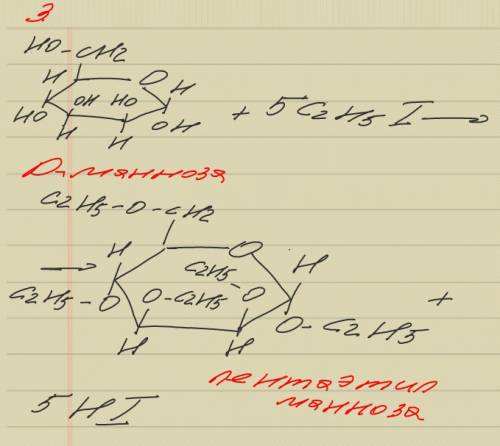 3
HO-CH2
H O H
HO OH HO OH + 5C2H5I →
H H
D-манноза
C2H5-O-CH2
→ H O H
C2H5-O O-C2H5 C2H5-O O-C2H5 +
H H
пентаэтил
манноза
5HI